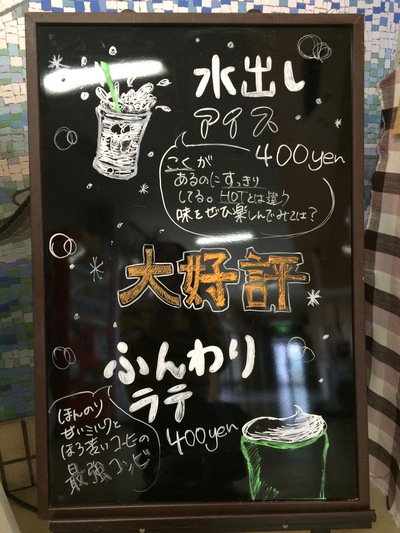 水出し
アイス
400yen
こくが
あるのにすっきり
してる。HOTとは違う
味をぜひ楽しんでみては?
大好評
ふんわり
ラテ
400yen
ほんのり
甘いミルクと
ほろ苦いコーヒーの
最強コンビ